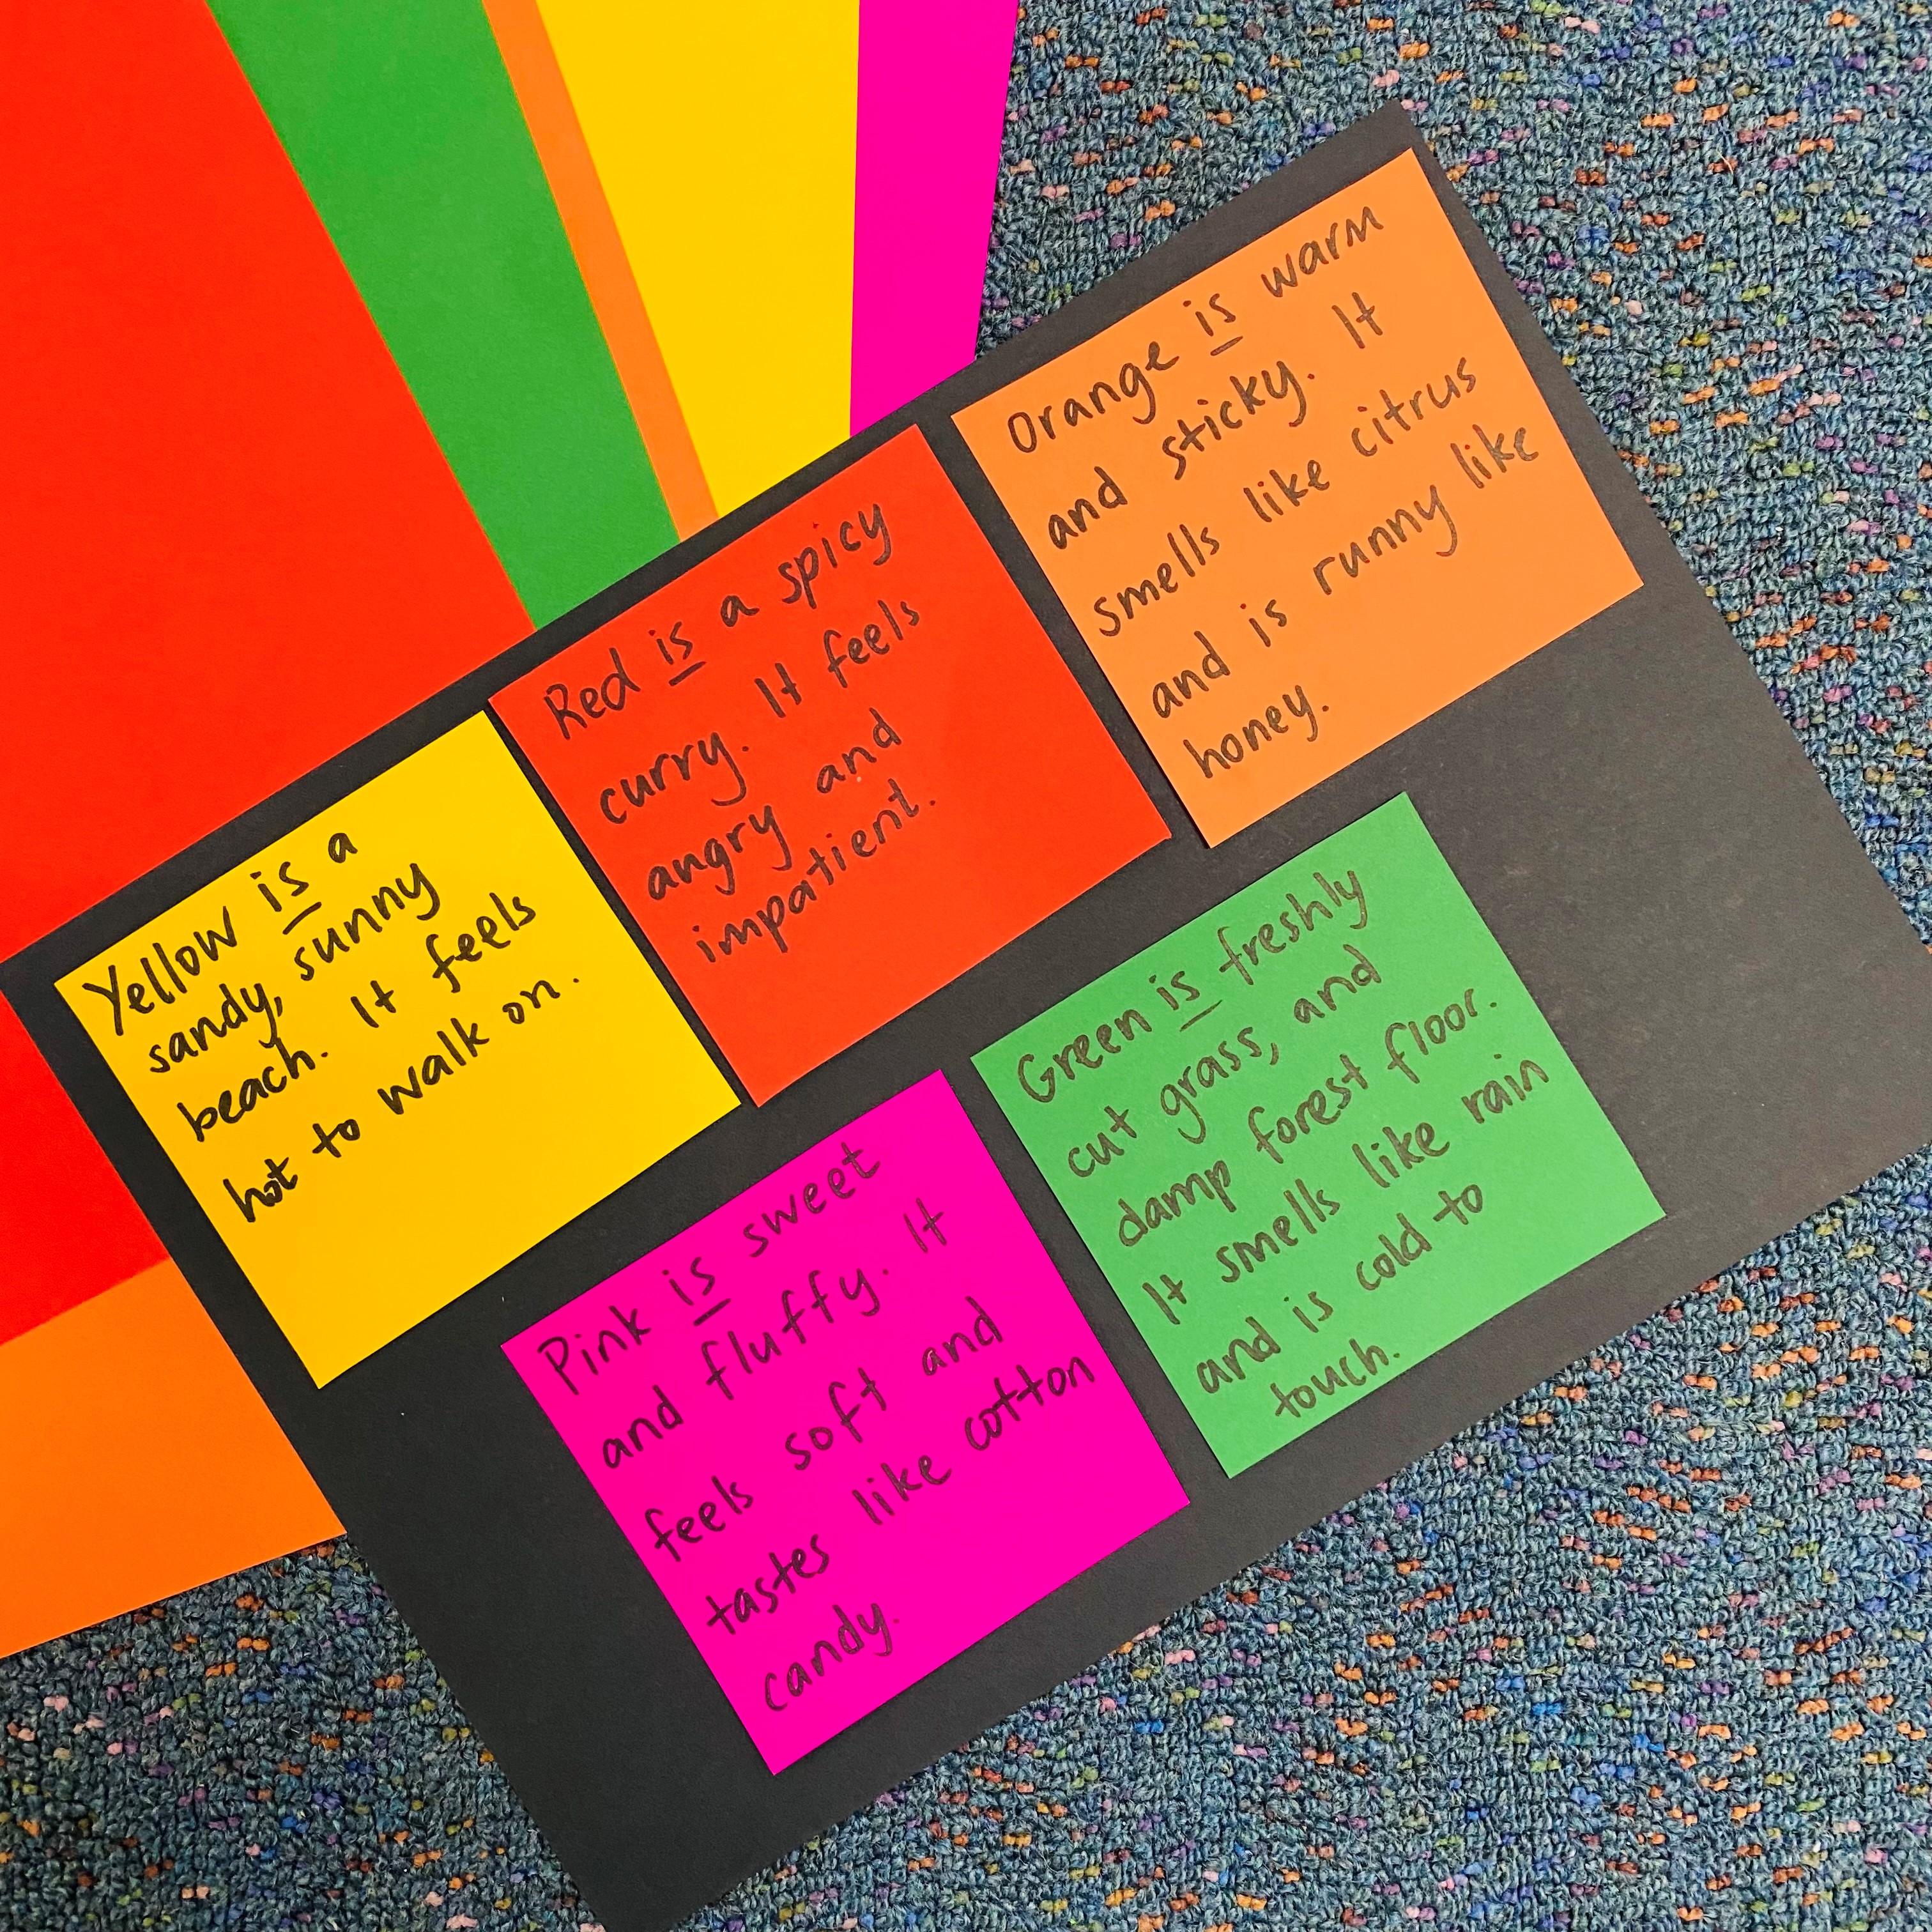 Yellow is a
sandy, sunny
beach. It feels
hot to walk on.
Red is a spicy
curry. It feels
angry and
impatient.
Orange is warm
and sticky. It
smells like citrus
and is runny like
honey.
Pink is sweet
and fluffy. It
feels soft and
tastes like cotton
candy.
Green is freshly
cut grass, and
damp forest floor.
It smells like rain
and is cold to
touch.